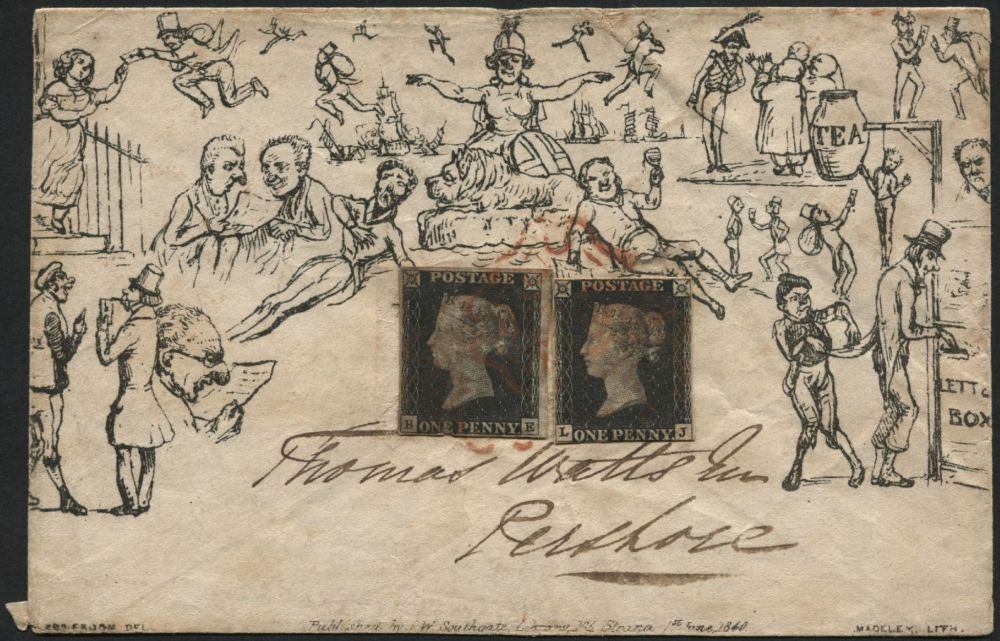 TEA
POSTAGE
POSTAGE
B ONE PENNY E
L ONE PENNY J
BOX
Thomas Watts
Pershore
DEL.
Published by W Southgate, Library, Strand 1st June, 1840.
MADELEY, LITH.